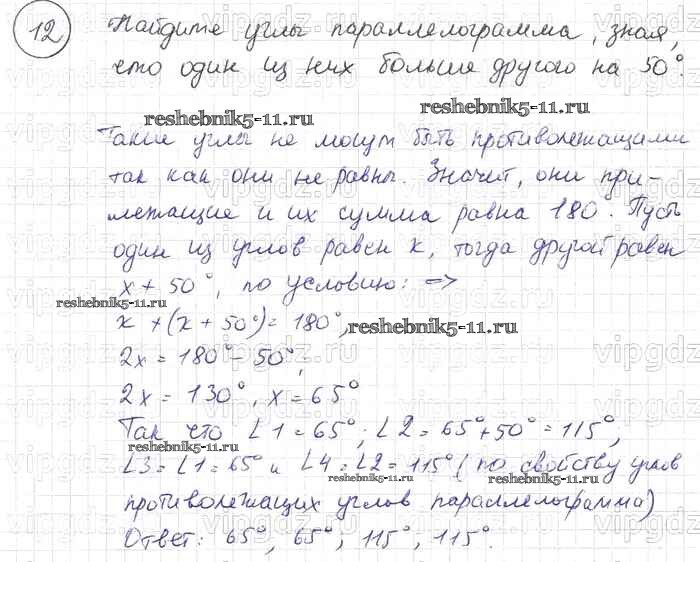 12 Найдите углы параллелограмма, зная,
что один из них больше другого на 50°.
reshebnik5-11.ru
reshebnik5-11.ru
Такие углы не могут быть противолежащими
так как они не равны. Значит, они при-
лежащие и их сумма равна 180°. Пусть
один из углов равен x, тогда другой равен
x + 50°, по условию: =>
reshebnik5-11.ru
x + (x + 50°) = 180°,
reshebnik5-11.ru
2x = 180° - 50°,
2x = 130°, x = 65°
Так что ∠1 = 65°, ∠2 = 65° + 50° = 115°,
reshebnik5-11.ru
∠3 = ∠1 = 65° и ∠4 = ∠2 = 115° (по свойству углов
reshebnik5-11.ru
reshebnik5-11.ru
противолежащих углов параллелограмма)
Ответ: 65°, 65°, 115°, 115°.